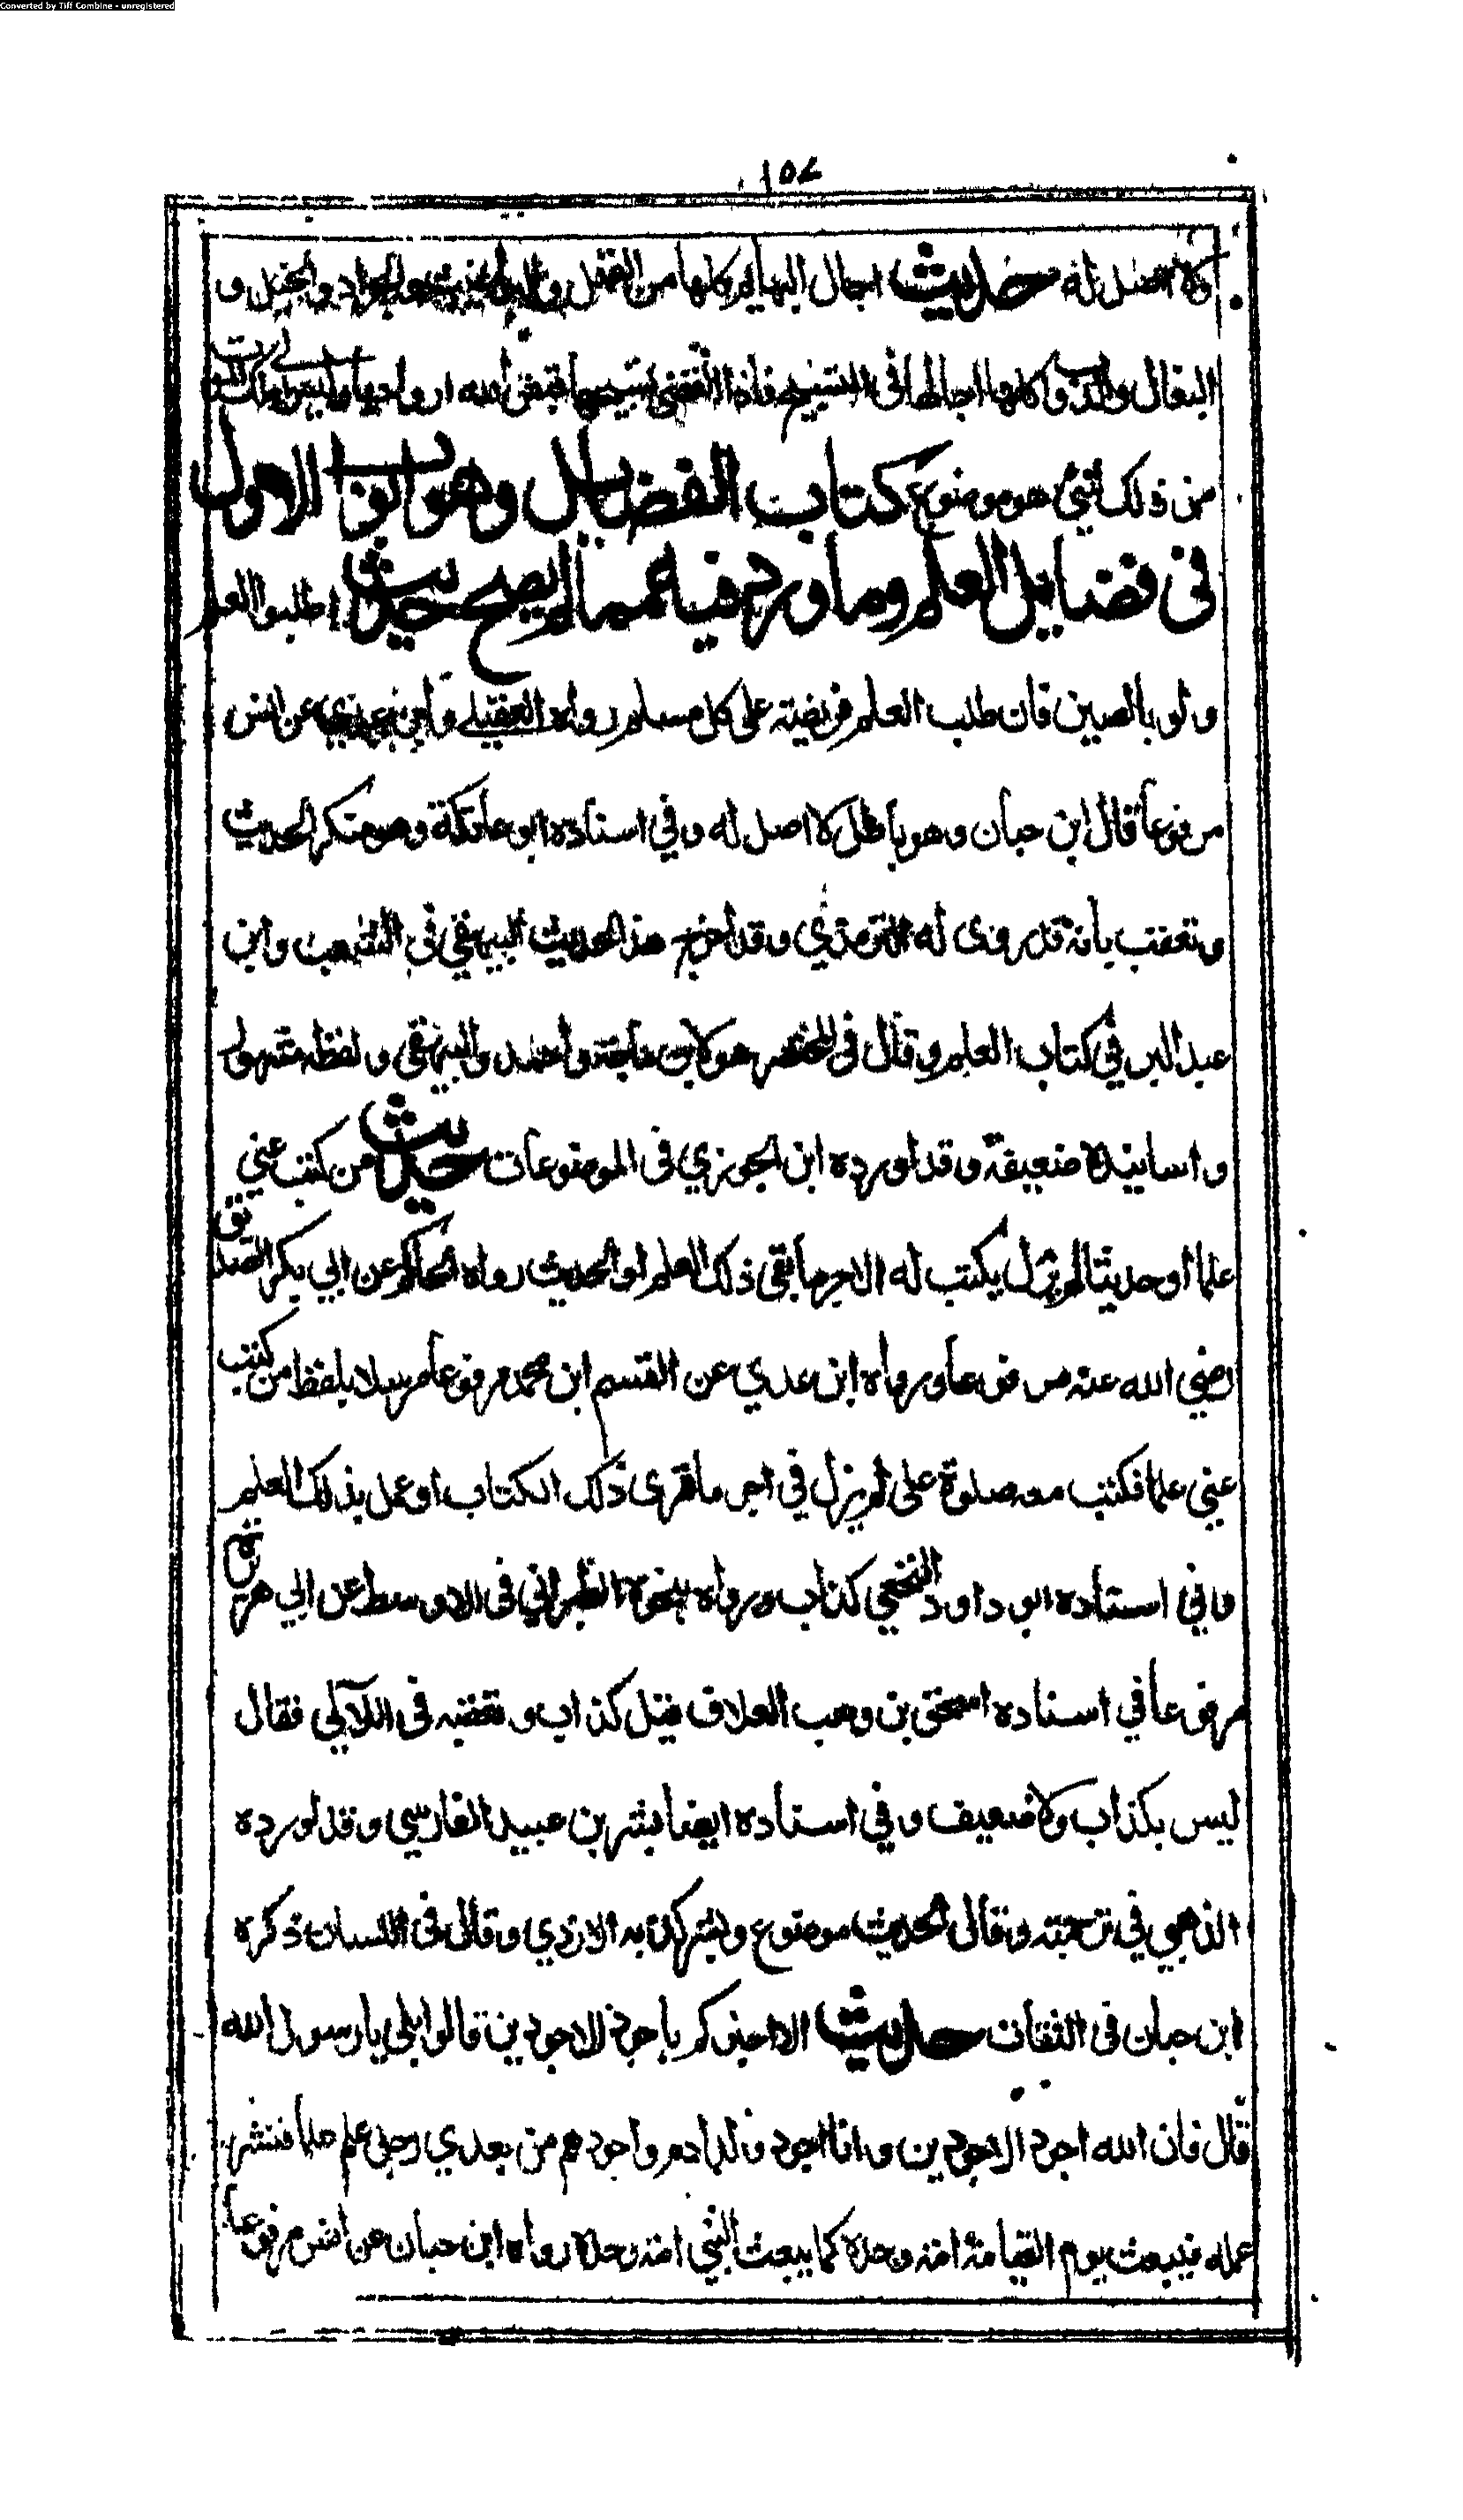 Converted by Tiff Combine - unregistered
١٥٤
لا اصل له حديث اجال البهايم كلها من القمل والبراغيث والجراد والخيل و
البغال والدواب كلها اجالها في التسبيح فاذا انقضى تسبيحها قبض الله ارواحها وليس الى ملك الموت
من ذلك شئ هو موضوع كتاب الفضايل وهو ابواب الاول
في فضايل العلم وما ورد فيه مما لم يصح حديث اطلبوا العلم
ولو بالصين فان طلب العلم فريضة على كل مسلم رواه العقيلي وابن عدي عن انس
مرفوعا قال ابن حبان وهو باطل لا اصل له وفي اسناده ابو عاتكة وهو منكر الحديث
وتعقب بانه قد روى له الترمذي وقد اخرج هذا الحديث البيهقي في الشعب وابن
عبد البر في كتاب العلم وقال في المختصر هو لابن ماجة واحمد والبيهقي ولفظه مشهور
واسانيده ضعيفة وقد اورده ابن الجوزي في الموضوعات حديث من كتب عني
علما او حديثا لم يزل يكتب له الاجر ما بقي ذلك العلم او الحديث رواه الحاكم عن ابي بكر الصديق
رضي الله عنه مرفوعا ورواه ابن عدي عن القسم ابن محمد مرفوعا مرسلا بلفظ من كتب
عني علما فكتب معه صلوة على لم يزل في اجر ما قرى ذلك الكتاب او عمل بذلك العلم
وفي اسناده ابو داود النخعي كذاب ورواه بنحوه الطبراني في الاوسط عن ابي هريرة
مرفوعا في اسناده اسحق بن وهب العلاف قيل كذاب وتعقبه في اللآلي فقال
ليس بكذاب ولا ضعيف وفي اسناده ايضا بشر بن عبيد الفارسي وقد اورده
الذهبي في ترجمته وقال الحديث موضوع وبشر كذبه الازدي وقال في اللسان ذكره
ابن حبان في الثقات حديث الا اخبركم باجود الاجودين قالوا بلى يا رسول الله
قال فان الله اجود الاجودين وانا اجود ولد ادم واجودهم من بعدي رجل علم علما فنشر
علمه فيبعث يوم القيامة امة وحده كما يبعث النبي امة وحده رواه ابن حبان عن انس مرفوعا